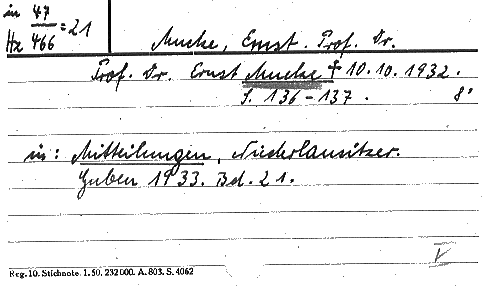 in 47
Hz 466 = 21
Mucke, Ernst. Prof. Dr.
Prof. Dr. Ernst Mucke † 10.10.1932.
S. 136-137. 8°
in: Mitteilungen, Niederlausitzer.
Guben 1933. Bd. 21.
V
Reg. 10. Stichnote. 1. 50. 232000. A. 803. S. 4062